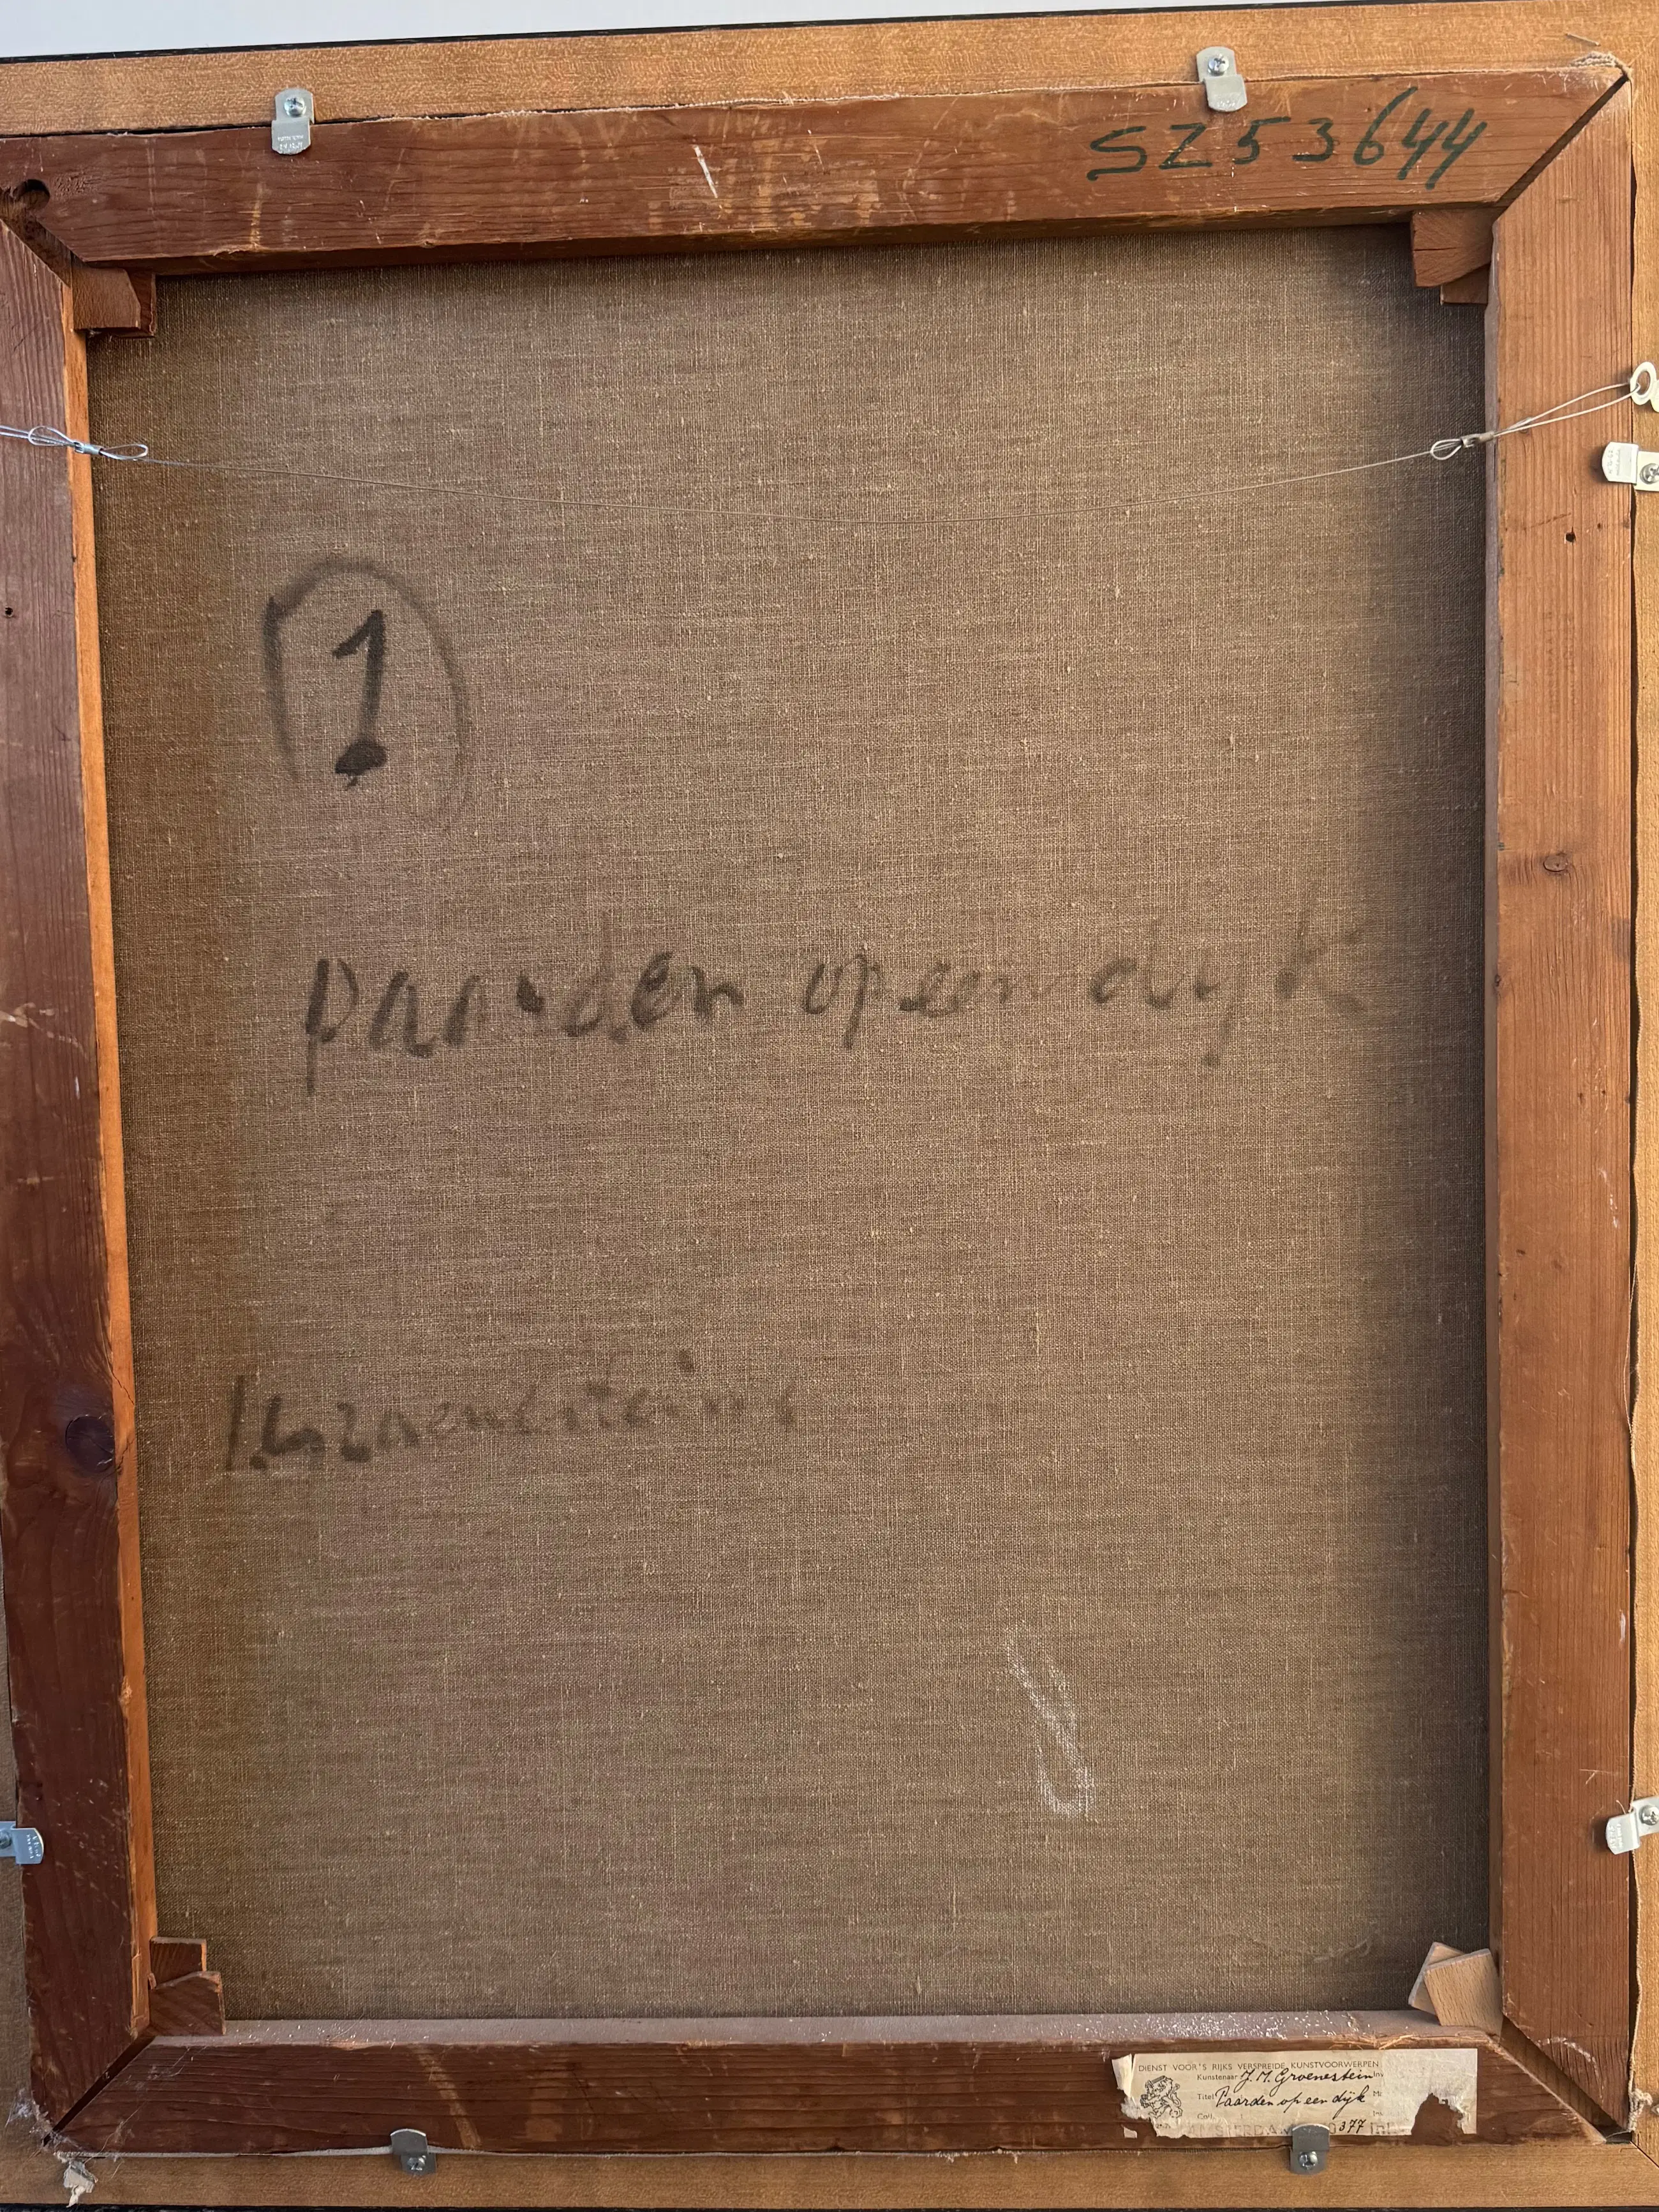 SZ53644
1
paarden op een dijk
DIENST VOOR'S RIJKS VERSPREIDE KUNSTVOORWERPEN
Kunstenaar J. M. Groenestein Inv
Titel Paarden op een dijk
377